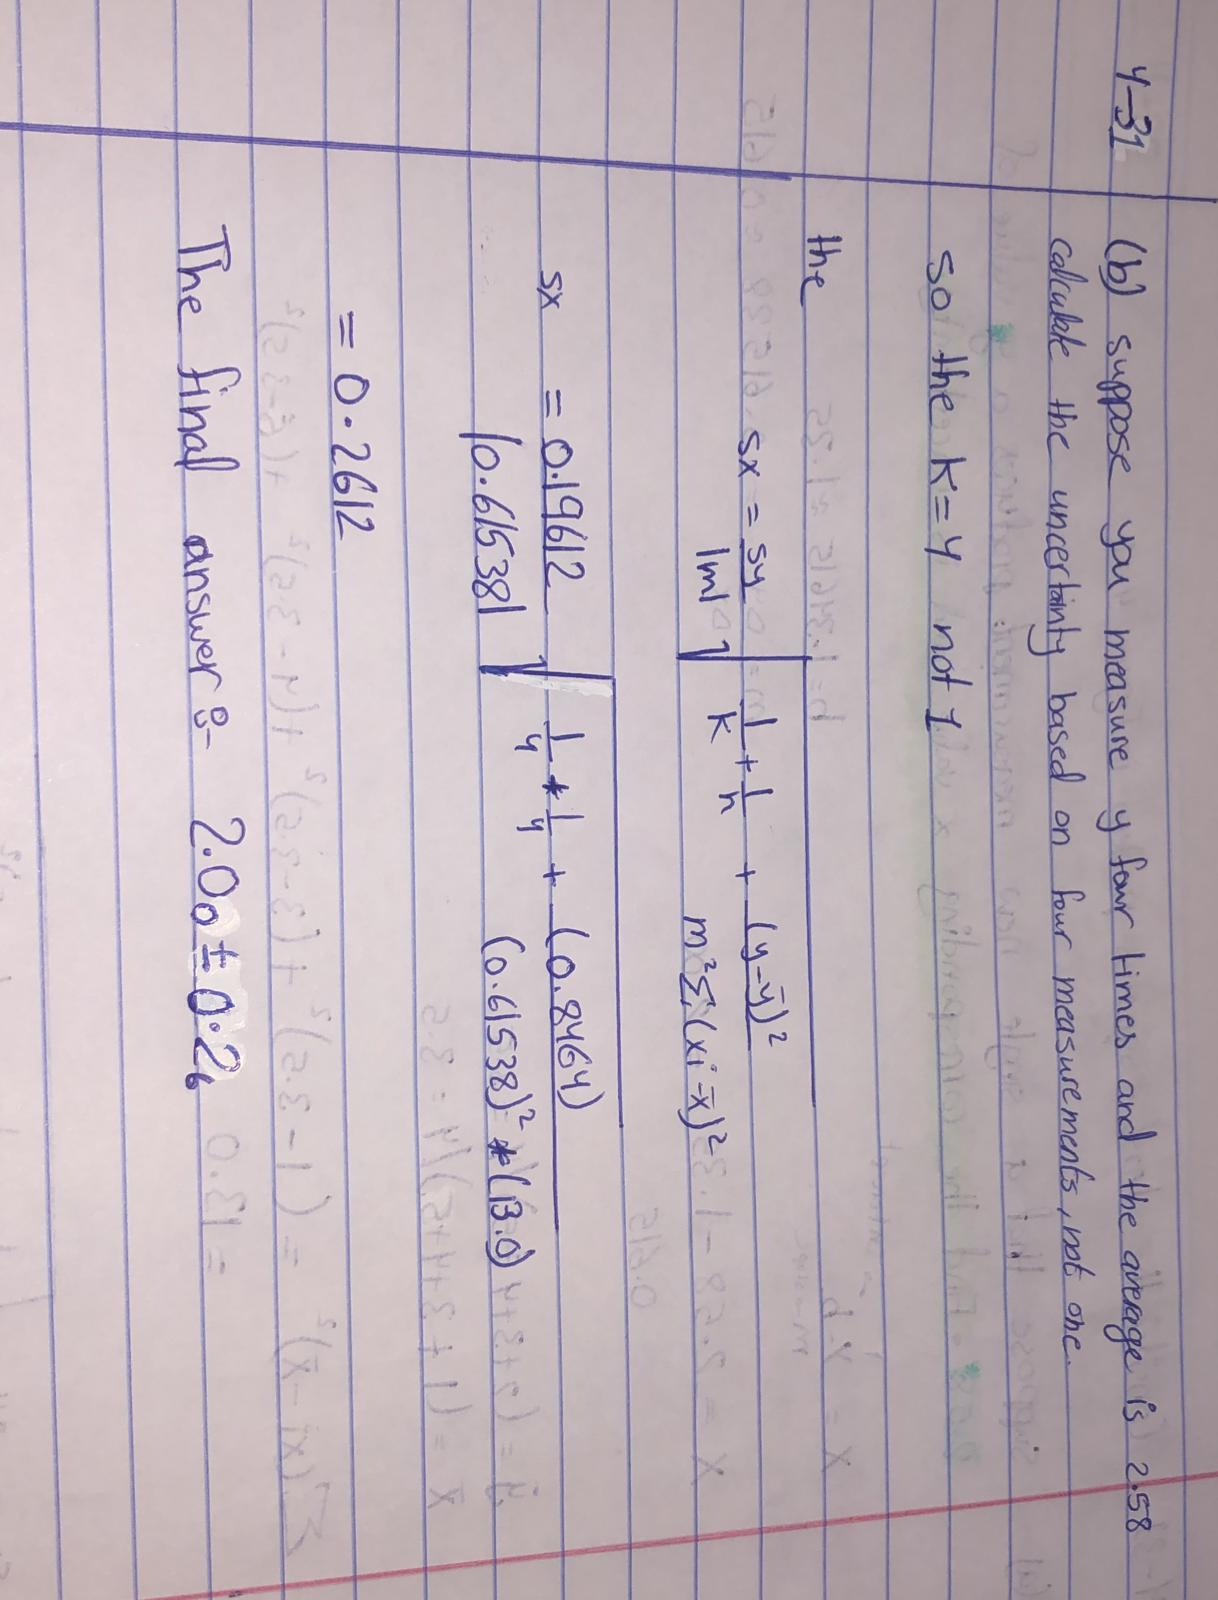 4-31 (b) suppose you measure y four times and the average is 2.58
calculate the uncertainty based on four measurements, not one.
so the k=4 not 1
the
sx = sy/|m| √ 1/k + 1/n + (y-ȳ)²/m²Σ(xi-x̄)²
sx = 0.19612/|0.61538| √ 1/4 + 1/4 + (0.8464)/(0.61538)² * (13.0)
= 0.2612
The final answer :- 2.00 ± 0.26